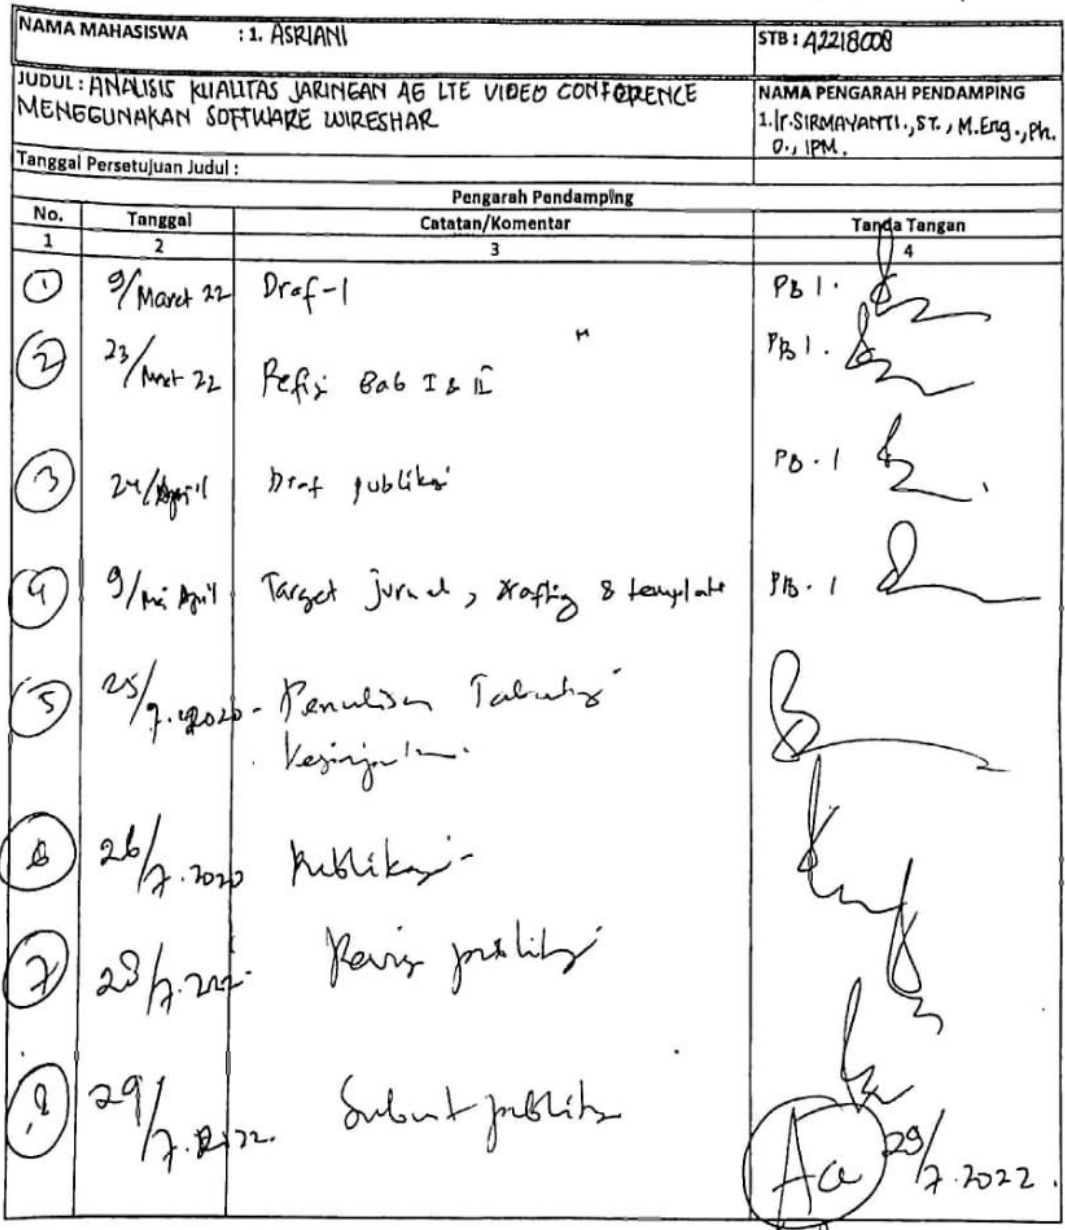 NAMA MAHASISWA : 1. ASRIANI
STB : 42218008
JUDUL : ANALISIS KUALITAS JARINGAN 4G LTE VIDEO CONFERENCE
MENGGUNAKAN SOFTWARE WIRESHAR
NAMA PENGARAH PENDAMPING
1. Ir. SIRMAYANTI., ST., M.Eng., Ph.
D., IPM.
Tanggal Persetujuan Judul :
Pengarah Pendamping
No. Tanggal Catatan/Komentar Tanda Tangan
1 2 3 4
1 9/Maret 22 Draf-1 PB 1.
2 23/Maret 22 Refisi Bab I & II PB 1.
3 24/April Draf publikasi PB-1
4 9/Mei April Target jurnal, drafting & template PB-1
5 25/7.2020 - Penulisan Tabulasi
Kesimpulan.
6 26/7.2020 Publikasi -
7 28/7.2022 Revisi publikasi
8 29/7.2022. Submit publikasi
Acc 29/7.2022.